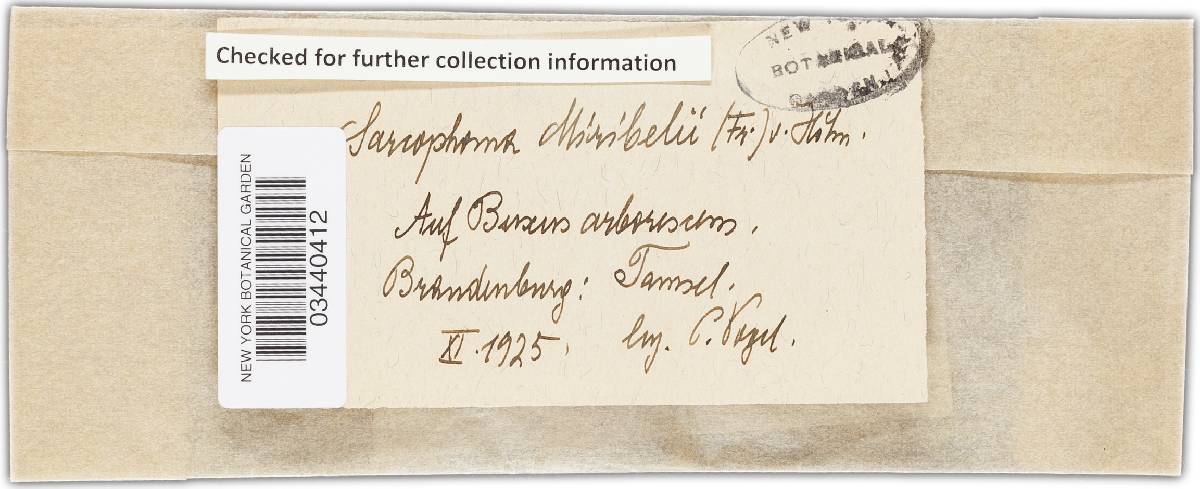 Checked for further collection information
NEW YORK
BOTANICAL
GARDEN
Sarcophoma Miribelii (Fr.) v. Höhn.
Auf Buxus arborescens.
Brandenburg: Tamsel.
XI. 1925. leg. P. Vogel.
NEW YORK BOTANICAL GARDEN
03440412